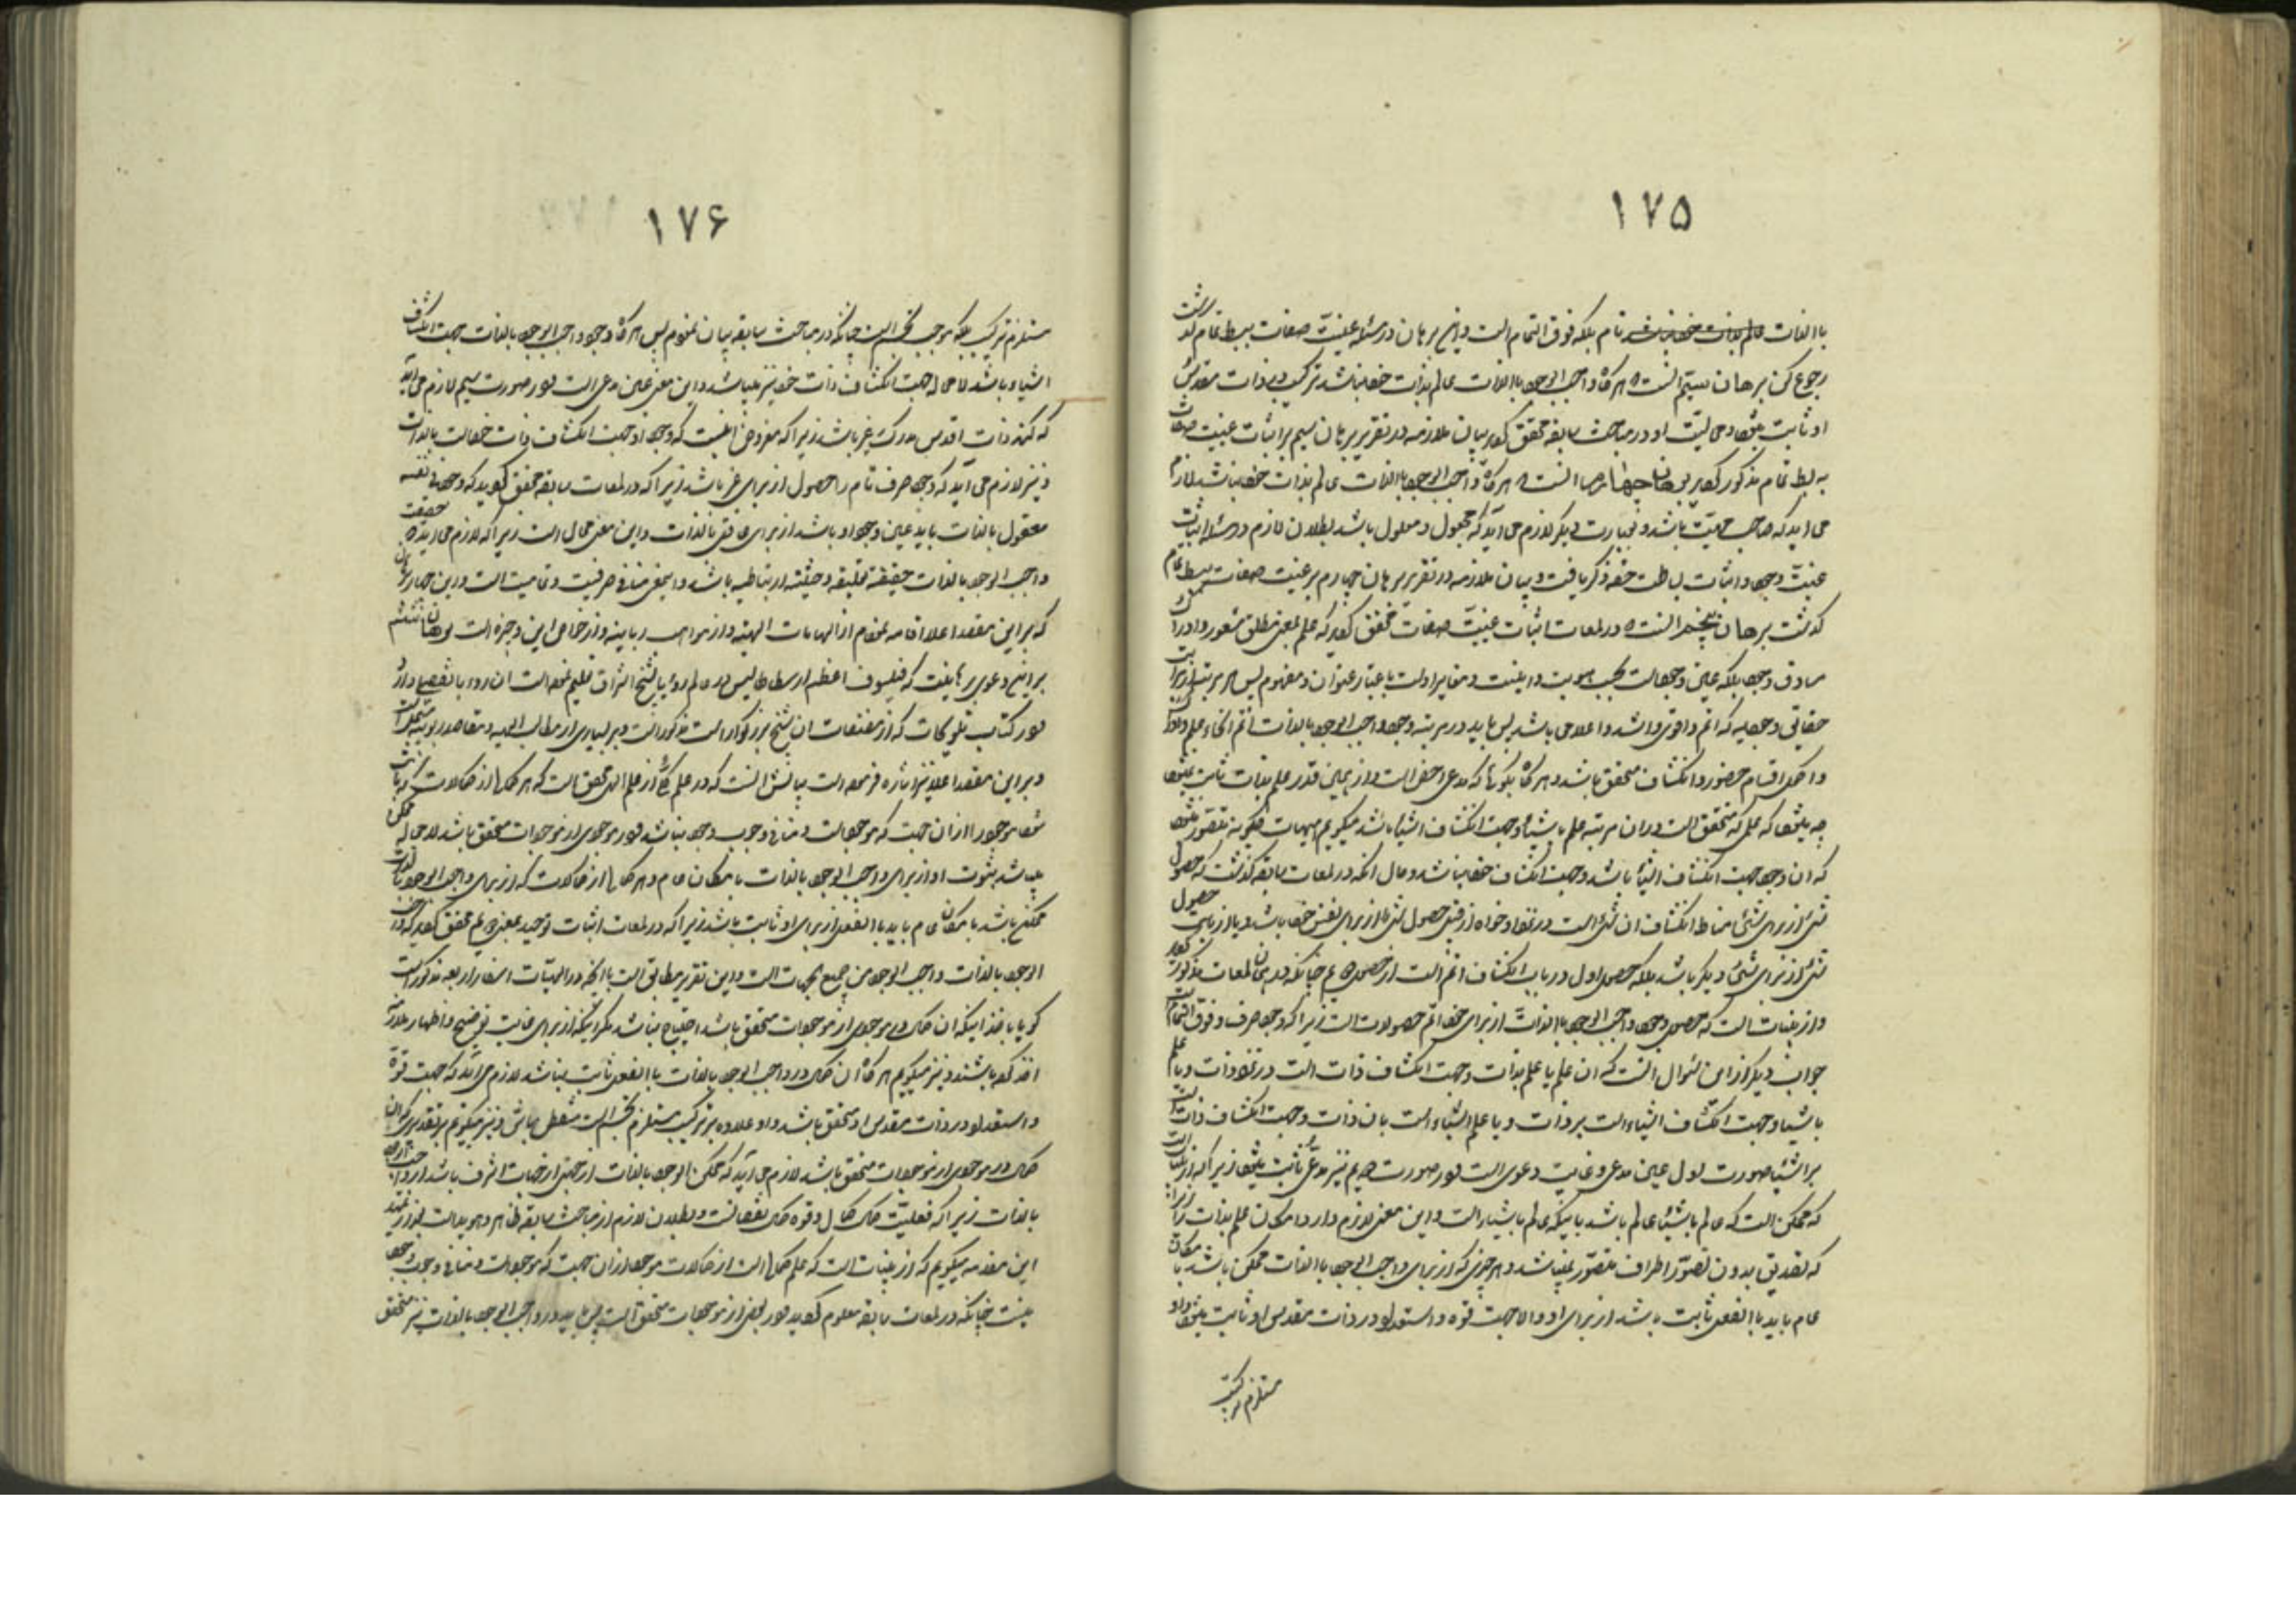 ۱۷۵
باالذات تام بلکه فوق التمام است و این برهان در مسئله عینیت صفات ببسط تمام گذشت
رجوع کن برهان سیم انست که هرگاه واجب الوجود باالذات عالم بذات خود نباشد ترکیب در ذات مقدس
او ثابت میشود و محالیت او در مباحث سابقه محقق گردید بیان ملازمه در تقریر برهان سیم بر اثبات عینیت صفات
به بسط تمام مذکور گردید برهان چهارم انست که هرگاه واجب الوجود باالذات عالم بذات خود نباشد لازم
می اید که صاحب مهیت باشد و بعبارت دیگر لازم می آید که مجعول و معلول باشد بطلان لازم در مسئله اثبات
عینیت وجود و اثبات بساطت خود ذکر یافت و بیان ملازمه در تقریر برهان چهارم بر عینیت صفات ببسط تمام
گذشت برهان پنجم انست که در لمعات اثبات عینیت صفات محقق گردید که علم بمعنی مطلق شعور و ادراک
مساوق وجود بلکه عین وجود است بحسب هویت و اینیت و مغایر اوست باعتبار عنوان و مفهوم پس هر مرتبه از مراتب
حقایق وجودیه که اتم و اقوی و اشد و اعلا می باشد پس باید در مرتبه وجود واجب الوجود بالذات اتم انحاء علم و ادراک
و اکمل اقسام حضور و انکشاف متحقق باشد و هرگاه بگویند که مدعی اخص است و از همین قدر علم بذات ثابت نمیشود
چه میشود که علمی که متحقق است در ان مرتبه علم باشیاء و جهت انکشاف اشیاء باشد میگویم هیهات چگونه متصور میشود
که ان وجود جهت انکشاف اشیاء باشد و جهت انکشاف خود نباشد و حال انکه در لمعات سابقه گذشت که حصول
شیء از برای شیء مناط انکشاف ان شیء است در نزد او خواه از قبیل حصول شیء از برای نفس خود باشد و یا از باب حصول
شیء از برای شیء دیگر باشد بلکه حصول اول در باب انکشاف اتم است از حصول دویم چنانکه در همان لمعات مذکور گردید
و از بینات است که حصول وجود واجب الوجود باالذات از برای خود اتم حصولات است زیرا که وجود صرف و فوق التمام است
جواب دیگر از این سئوال انست که ان علم یا علم بذات و جهت انکشاف ذات است در نزد ذات و یا علم
باشیا و جهت انکشاف اشیاء است بر ذات و یا علم اشیاء است بان ذات و جهت انکشاف ذات است
بر اشیا صورت اول عین مدعی و غایت دعوی است و در صورت دویم نیز مدعی ثابت میشود زیرا که از بینات است
که ممکن است که عالم باشیاء عالم باشد باینکه عالم باشیاء است و این معنی لازم دارد امکان علم بذات را زیرا
که تصدیق بدون تصور اطراف متصور نمیباشد و هر چیزی که از برای واجب الوجود باالذات ممکن باشد بامکان
عام باید باالفعل ثابت باشد از برای او و الا جهت قوه و استعداد در ذات مقدس او ثابت میشود و او
مستلزم ترکیب
۱۷۶
مستلزم ترکیب بلکه موجب تجسم است چنانکه در مباحث سابقه بیان نمودم پس هرگاه وجود واجب الوجود بالذات جهت انکشاف
اشیاء باشد لا محاله جهت انکشاف ذات خود نیز میباشد و این معنی عین مدعی است و در صورت سیم لازم می آید
که کنه ذات اقدس مدرک غیر باشد زیرا که مفروض اینست که وجود او جهت انکشاف ذات خود است بالذات
و نیز لازم می آید که وجود صرف تام را حصول از برای غیر باشد زیرا که در لمعات سابقه محقق گردید که وجود فی نفسه
معقول بالذات باید عین وجود او باشد از برای عاقل بالذات و این معنی محال است زیرا که لازم می اید که حقیقت
واجب الوجود بالذات حقیقة تعلقیه و حیثیه ارتباطیه باشد و این معنی منافی صرفیت و تمامیت است و این چهار برهان
که بر این مقصد اعلا اقامه نمودم از الهامات الهیه و از مواهب ربانیه و از خواص این وجیزه است برهان ششم
بر این دعوی برهانیست که فیلسوف اعظم ارسطاطالیس در عالم رؤیا بشیخ اشراق تعلیم نموده است ان رؤیا بتفصیلها
در کتاب تلویحات که از مصنفات ان شیخ بزرگوار است مذکور است و بر بسیاری از مطالب الهیه و مقاصد ربوبیه مشتمل است
و بر این مقصد اعلا نیز اشاره فرموده است بیانش انست که در علم کلی از علم الهی محقق است که هر کمال از کمالات که ثابت
شود موجود را از ان جهت که موجود است و منافی وجوب وجود نباشد و در موجودی از موجودات محقق باشد لا محاله ممکن
میباشد ثبوت او از برای واجب الوجود بالذات بامکان عام و هر کمال از کمالات که از برای واجب الوجود بالذات
ممکن باشد بامکان عام باید باالفعل از برای او ثابت باشد زیرا که در لمعات اثبات توحید بمعنی دویم محقق گردید که واجب
الوجود بالذات واجب الوجود من جمیع الجهات است و این تقریر مطابق است باانچه در الهیات اسفار اربعه مذکور است
گویا باخذ اینکه ان کمال در موجودی از موجودات متحقق باشد احتیاج نباشد مگر اینکه از برای غایت توضیح و اظهار
اخذ کرده باشند و نیز میگویم هرگاه ان کمال در واجب الوجود بالذات باالفعل ثابت نباشد لازم می آید که جهت قوة
و استعداد در ذات مقدس او متحقق باشد و او علاوه بر ترکیب مستلزم تجسم است و نیز میگویم بر تقدیری که ان
کمال در موجودی از موجودات متحقق باشد لازم می آید که ممکن الوجود بالذات از جهتی از جهات اشرف باشد از واجب الوجود
بالذات زیرا که فعلیت کمال کمال و قوه کمال نقصانست و بطلان لازم از مباحث سابقه ظاهر و هویداست و بعد از تمهید
این مقدمه میگویم که از بینات است که علم کمال است از کمالات موجود از ان جهت که موجود است و منافی وجوب وجود
نیست چنانکه در لمعات سابقه معلوم گردید و در بعضی از موجودات متحقق است پس باید در واجب الوجود بالذات نیز متحقق